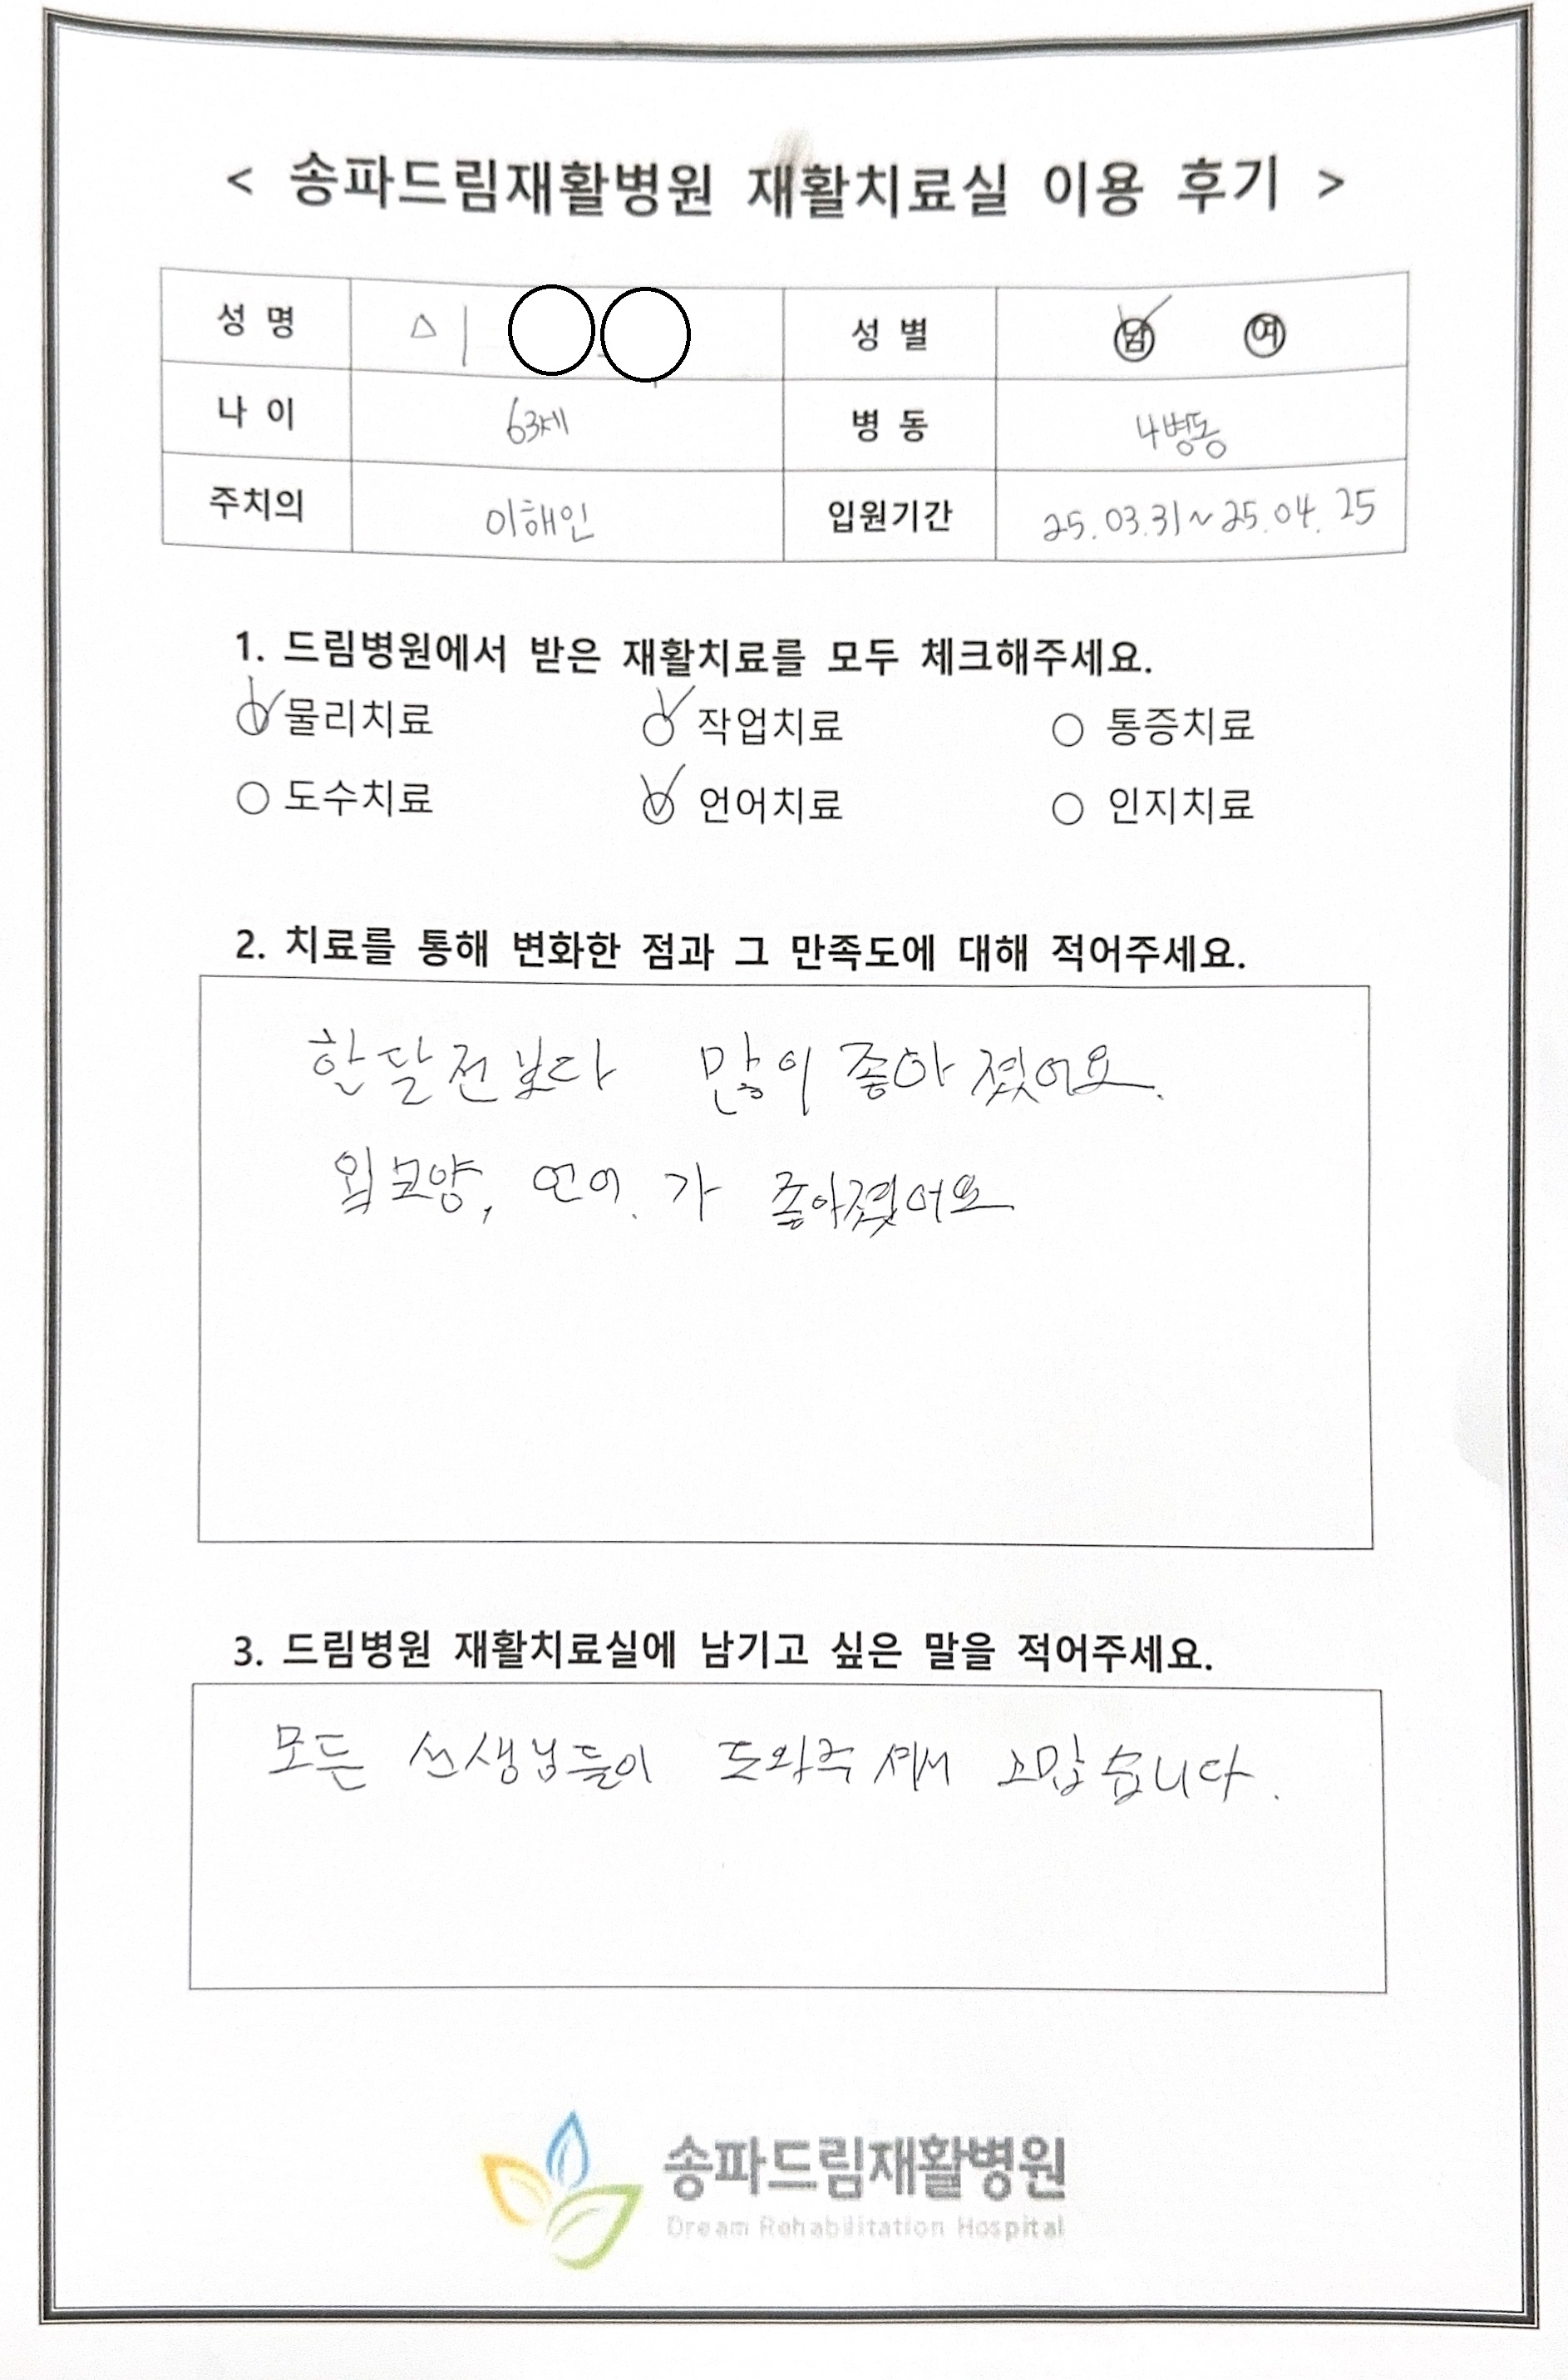 < 송파드림재활병원 재활치료실 이용 후기 >
성 명 이 성 별 남 여
나 이 63세 병 동 4병동
주치의 이해인 입원기간 25.03.31~25.04.25
1. 드림병원에서 받은 재활치료를 모두 체크해주세요.
물리치료 작업치료 통증치료
도수치료 언어치료 인지치료
2. 치료를 통해 변화한 점과 그 만족도에 대해 적어주세요.
한달전보다 많이 좋아졌어요.
입모양, 언어.가 좋아졌어요
3. 드림병원 재활치료실에 남기고 싶은 말을 적어주세요.
모든 선생님들이 도와주셔서 고맙습니다.
송파드림재활병원
Dream Rehabilitation Hospital